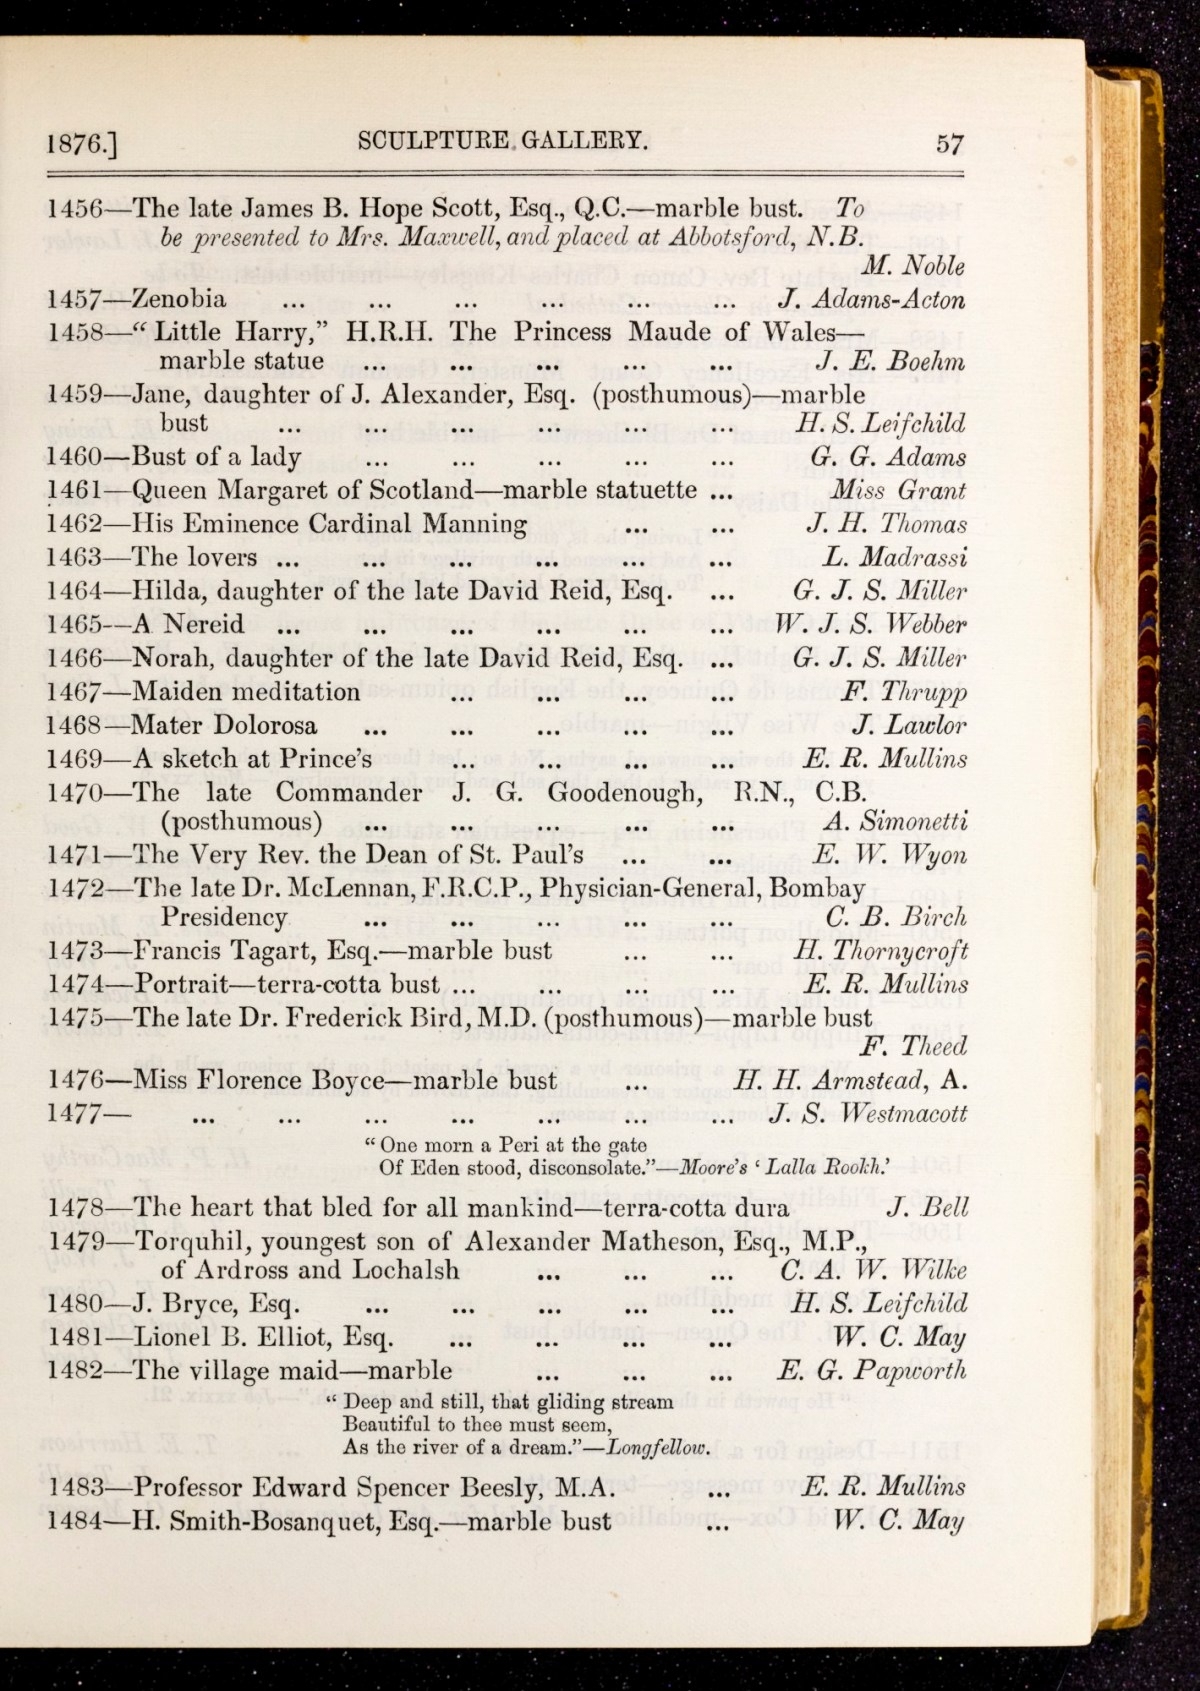 1876.] SCULPTURE GALLERY. 57
1456—The late James B. Hope Scott, Esq., Q.C.—marble bust. To
be presented to Mrs. Maxwell, and placed at Abbotsford, N.B.
M. Noble
1457—Zenobia ... ... ... ... ... ... J. Adams-Acton
1458—“Little Harry,” H.R.H. The Princess Maude of Wales—
marble statue ... ... ... ... ... J. E. Boehm
1459—Jane, daughter of J. Alexander, Esq. (posthumous)—marble
bust ... ... ... ... ... ... H. S. Leifchild
1460—Bust of a lady ... ... ... ... ... G. G. Adams
1461—Queen Margaret of Scotland—marble statuette ... Miss Grant
1462—His Eminence Cardinal Manning ... ... J. H. Thomas
1463—The lovers ... ... ... ... ... ... L. Madrassi
1464—Hilda, daughter of the late David Reid, Esq. ... G. J. S. Miller
1465—A Nereid ... ... ... ... ... ... W. J. S. Webber
1466—Norah, daughter of the late David Reid, Esq. ... G. J. S. Miller
1467—Maiden meditation ... ... ... ... F. Thrupp
1468—Mater Dolorosa ... ... ... ... ... J. Lawlor
1469—A sketch at Prince's ... ... ... ... E. R. Mullins
1470—The late Commander J. G. Goodenough, R.N., C.B.
(posthumous) ... ... ... ... ... A. Simonetti
1471—The Very Rev. the Dean of St. Paul's ... ... E. W. Wyon
1472—The late Dr. McLennan, F.R.C.P., Physician-General, Bombay
Presidency ... ... ... ... ... C. B. Birch
1473—Francis Tagart, Esq.—marble bust ... ... H. Thornycroft
1474—Portrait—terra-cotta bust ... ... ... ... E. R. Mullins
1475—The late Dr. Frederick Bird, M.D. (posthumous)—marble bust
F. Theed
1476—Miss Florence Boyce—marble bust ... H. H. Armstead, A.
1477— ... ... ... ... ... ... ... J. S. Westmacott
“One morn a Peri at the gate
Of Eden stood, disconsolate.”—Moore's ‘Lalla Rookh.’
1478—The heart that bled for all mankind—terra-cotta dura J. Bell
1479—Torquhil, youngest son of Alexander Matheson, Esq., M.P.,
of Ardross and Lochalsh ... ... ... C. A. W. Wilke
1480—J. Bryce, Esq. ... ... ... ... ... H. S. Leifchild
1481—Lionel B. Elliot, Esq. ... ... ... ... W. C. May
1482—The village maid—marble ... ... ... E. G. Papworth
“Deep and still, that gliding stream
Beautiful to thee must seem,
As the river of a dream.”—Longfellow.
1483—Professor Edward Spencer Beesly, M.A. ... E. R. Mullins
1484—H. Smith-Bosanquet, Esq.—marble bust ... W. C. May